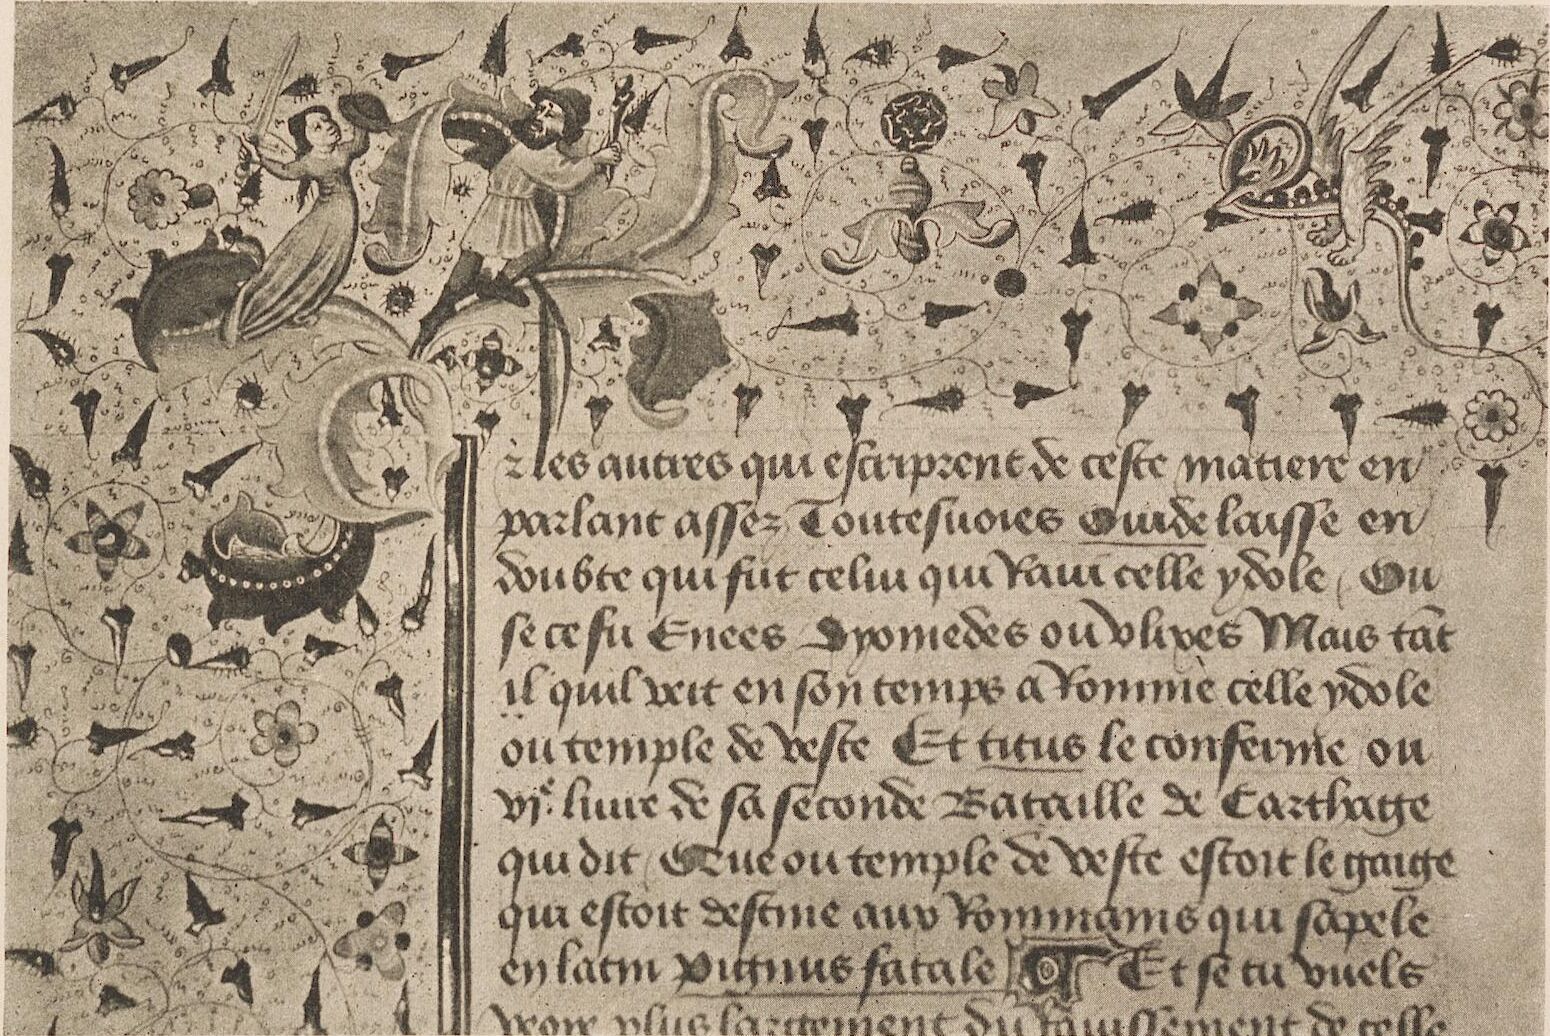 ⁊ les autres qui escriprent de ceste matiere en
parlant assez Toutesuoies Ouide laisse en
doubte qui fut celui qui Raui celle ydole / Ou
se ce fu Enees Dyomedes ou vlixes Mais tāt
il quil veit en son temps a Romme celle ydole
ou temple de veste Et titus le conferme ou
vjᵉ. liure de sa seconde Bataille de Carthage
qui dit / Que ou temple de veste estoit le gaige
qui estoit destine aux Rommains qui sapele
en latin Pignus fatale Et se tu vuels
veoir plus largement du rauissement de celle